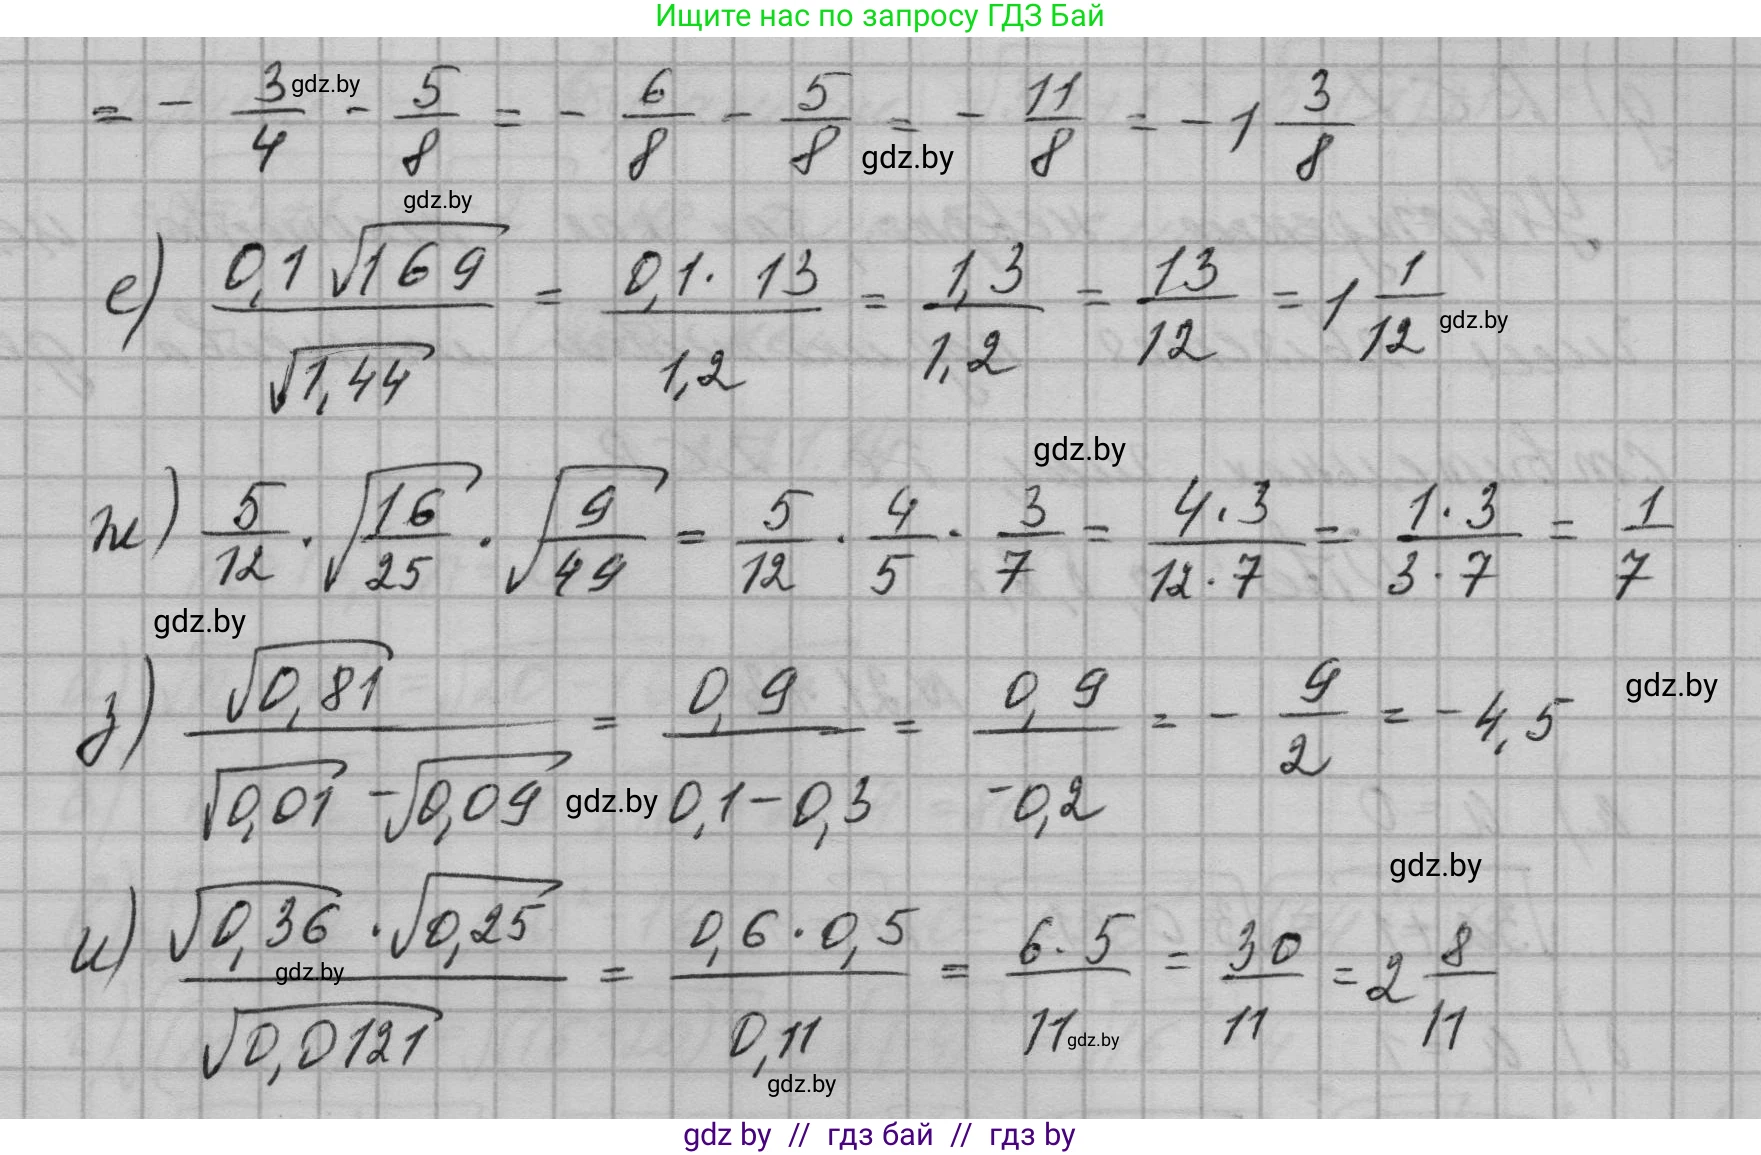 Ищите нас по запросу ГДЗ Бай
= - 3/4 - 5/8 = - 6/8 - 5/8 = - 11/8 = -1 3/8
gdz.by
gdz.by
gdz.by
е) 0,1 √169 / √1,44 = 0,1 · 13 / 1,2 = 1,3 / 1,2 = 13/12 = 1 1/12
gdz.by
gdz.by
ж) 5/12 · √16/25 · √9/49 = 5/12 · 4/5 · 3/7 = 4·3 / 12·7 = 1·3 / 3·7 = 1/7
gdz.by
з) √0,81 / √0,01 - √0,09 = 0,9 / 0,1-0,3 = 0,9 / -0,2 = - 9/2 = -4,5
gdz.by
gdz.by
gdz.by
и) √0,36 · √0,25 / √0,0121 = 0,6 · 0,5 / 0,11 = 6·5 / 11 = 30/11 = 2 8/11
gdz.by
gdz.by
gdz.by
gdz by // гдз бай // гдз by